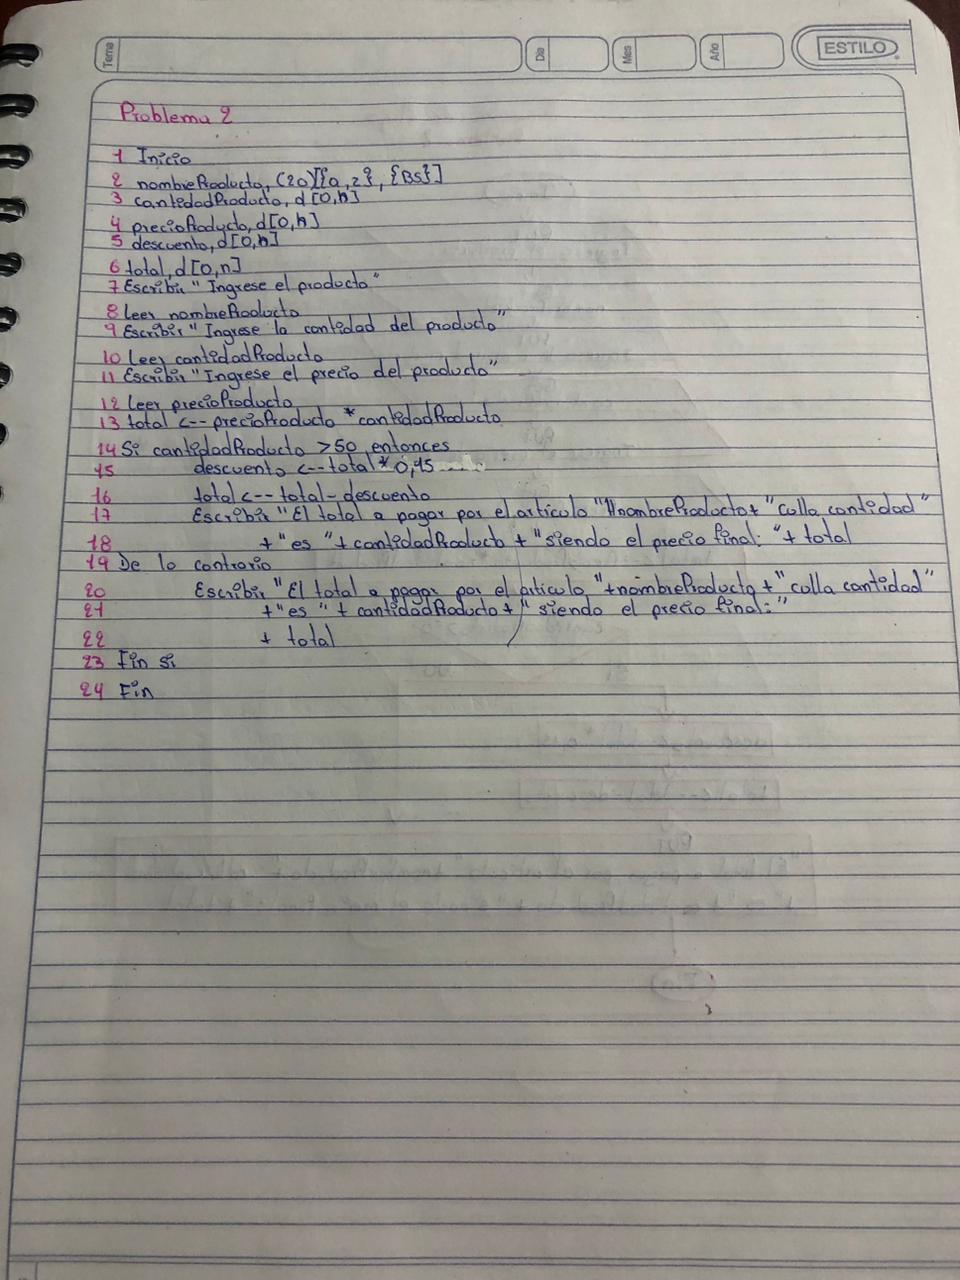 Tema
Dia
Mes
Año
ESTILO
Problema 2
1 Inicio
2 nombreProducto, (20)[{a,z}, {Bs}]
3 cantidadProducto, d[0,n]
4 precioProducto, d[0,n]
5 descuento, d[0,n]
6 total, d[0,n]
7 Escribir "Ingrese el producto"
8 Leer nombreProducto
9 Escribir "Ingrese la cantidad del producto"
10 Leer cantidadProducto
11 Escribir "Ingrese el precio del producto"
12 Leer precioProducto
13 total <-- precioProducto * cantidadProducto
14 Si cantidadProducto >50 entonces
15 descuento <-- total * 0,15
16 total <-- total - descuento
17 Escribir "El total a pagar por el articulo "+nombreProducto+ "culla cantidad"
18 + "es "+ cantidadProducto + "siendo el precio final: "+ total
19 De lo contrario
20 Escribir "El total a pagar por el articulo "+nombreProducto +"culla cantidad"
21 + "es "+ cantidadProducto+ "siendo el precio final:"
22 + total
23 Fin si
24 Fin